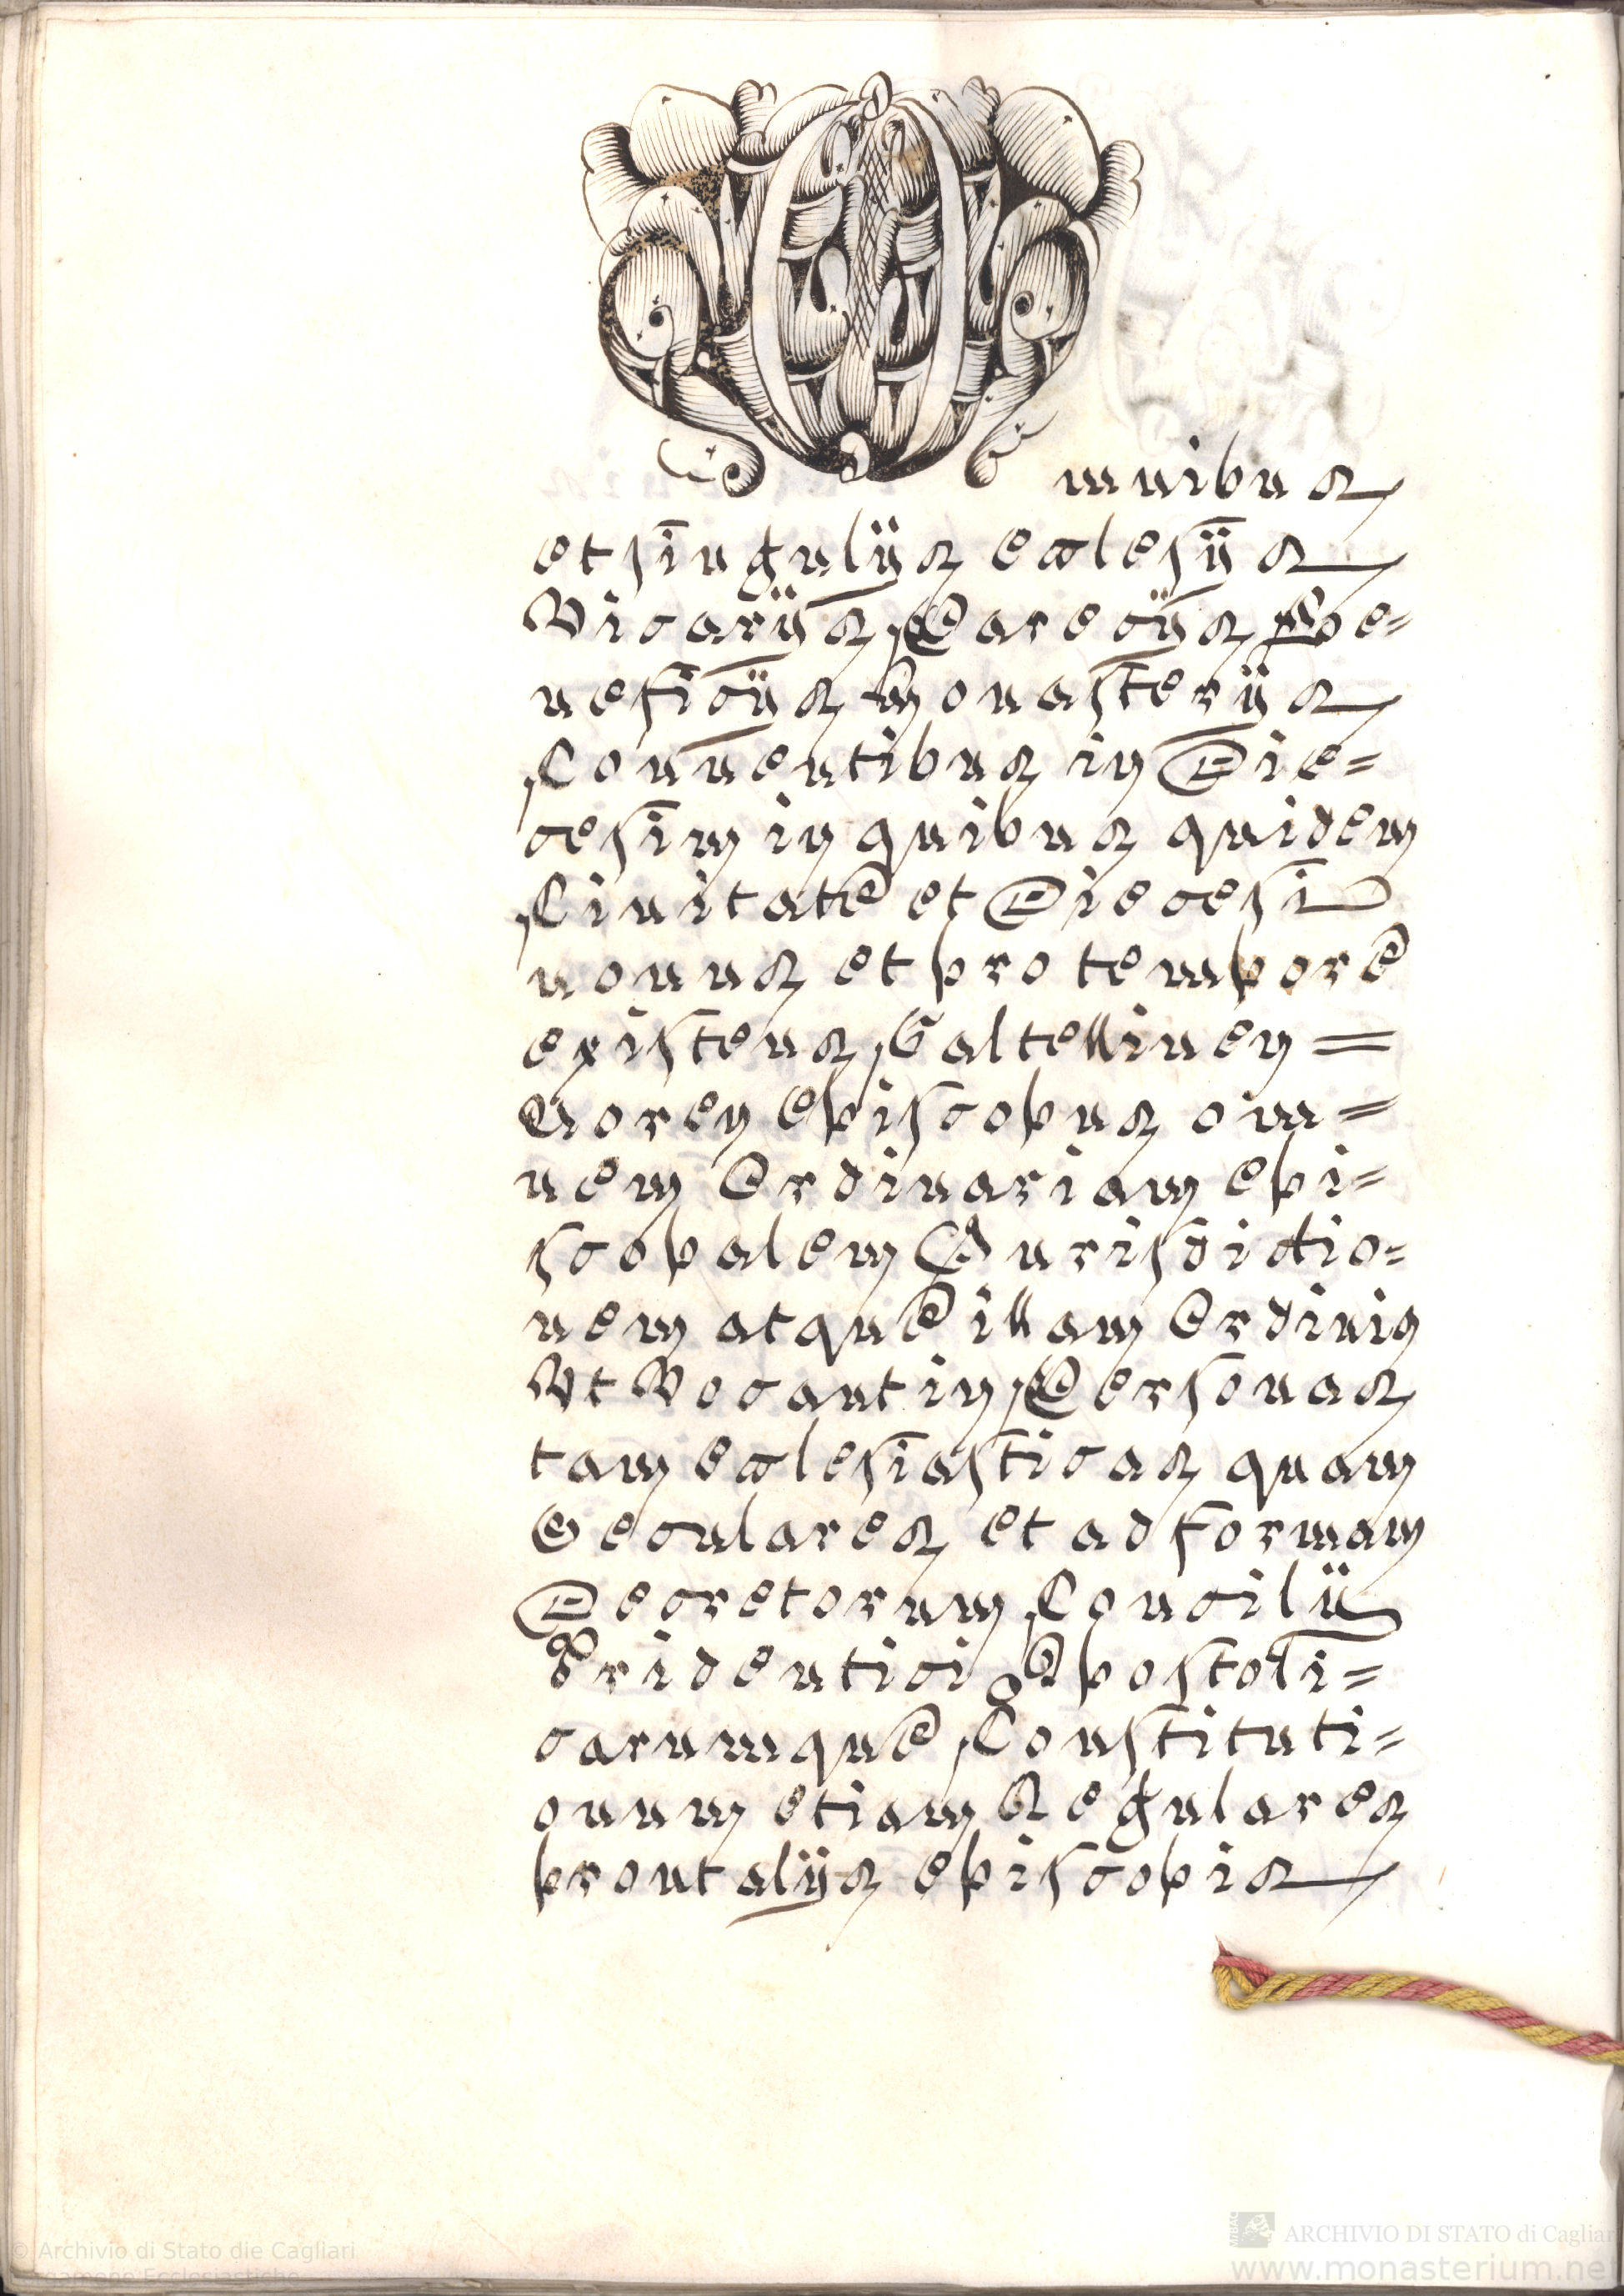 Omnibus
et singulijs ecclesijs
Vicarijs Parecijs Be=
neficijs Monasterijs
Conuentibus in Die=
cesim in quibus quidem
Ciuitate et Diecesi
nonus et pro tempore
existens Galtellinen=
Noren episcopus om=
nem Ordinariam epi=
scopalem Iurisdictio=
nem atque illam Ordinis
Vt Vocant in Personas
tam ecclesiasticas quam
Seculares et ad formam
Decretorum Concilij
Tridentici Apostoli=
carumque Constituti=
onum etiam Regulares
prout alijs episcopis
© Archivio di Stato die Cagliari
ARCHIVIO DI STATO di Cagliari
www.monasterium.net